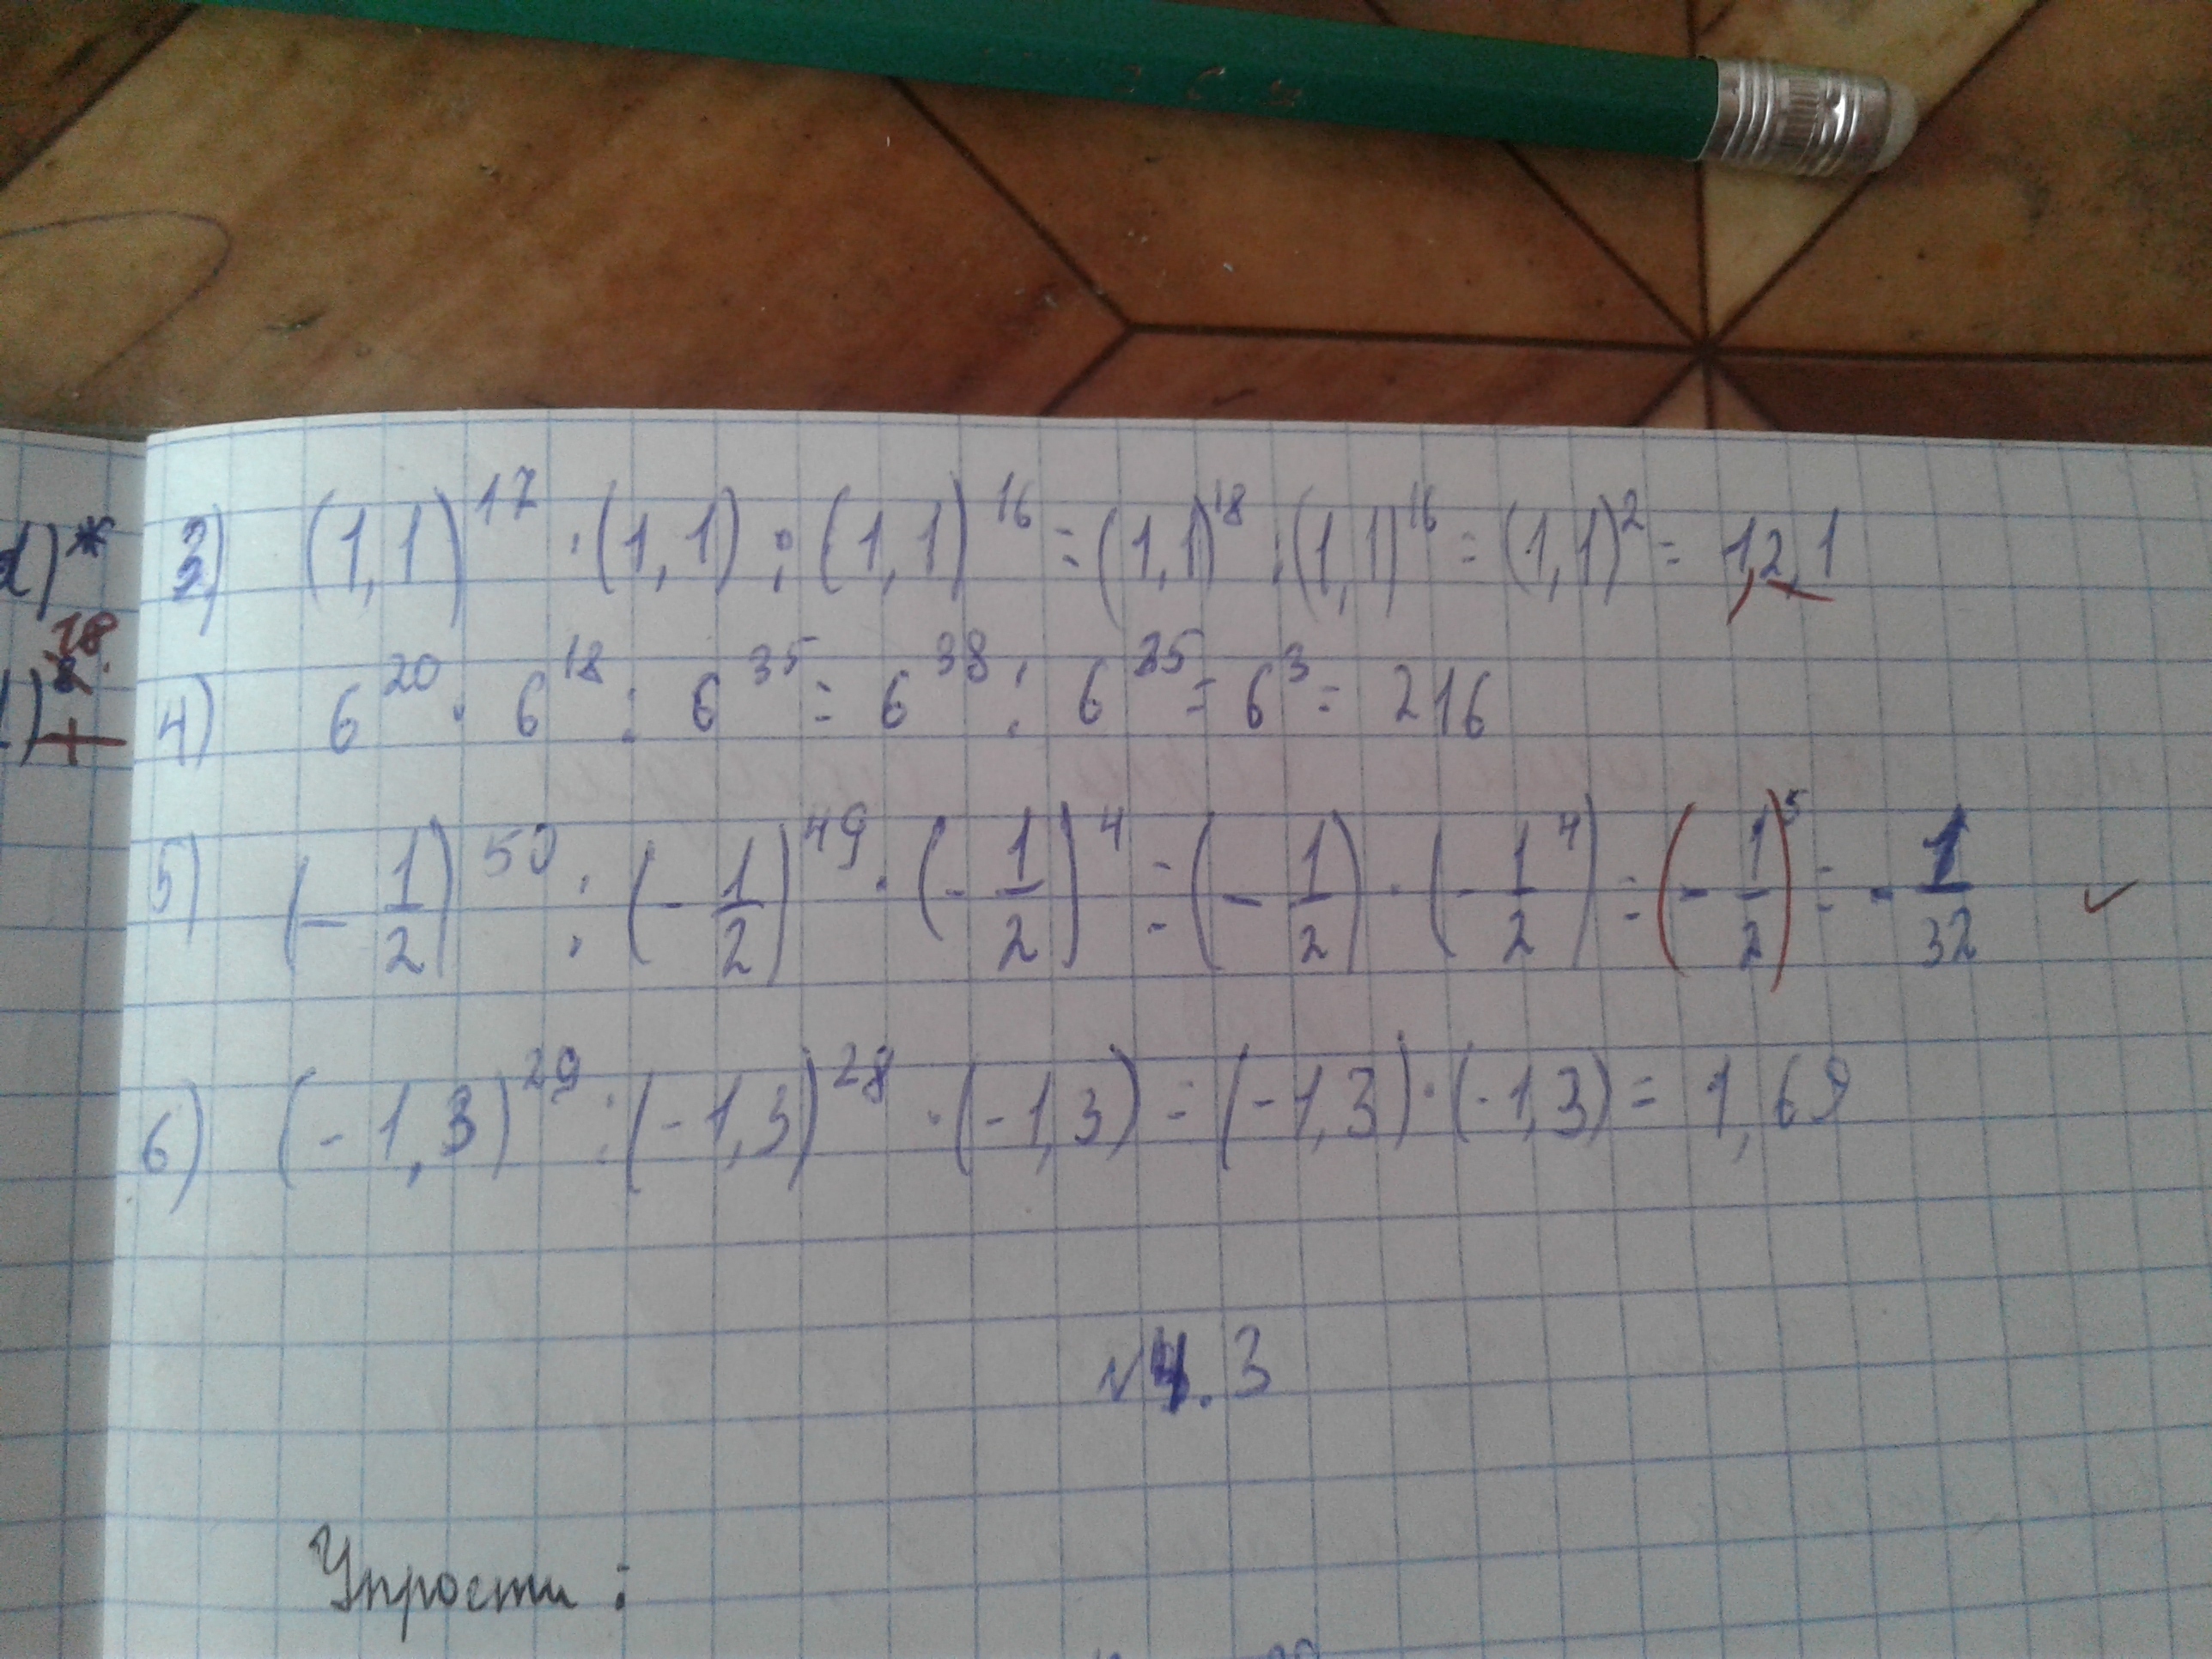 3) (1,1)^17 · (1,1) : (1,1)^16 = (1,1)^18 : (1,1)^16 = (1,1)^2 = 1,2,1
4) 6^20 · 6^18 : 6^35 = 6^38 : 6^35 = 6^3 = 216
5) (-1/2)^50 : (-1/2)^49 · (-1/2)^4 = (-1/2) · (-1/2^4) = (-1/2)^5 = -1/32 ✓
6) (-1,3)^29 : (-1,3)^28 · (-1,3) = (-1,3) · (-1,3) = 1,69
№4.3
Упрости :